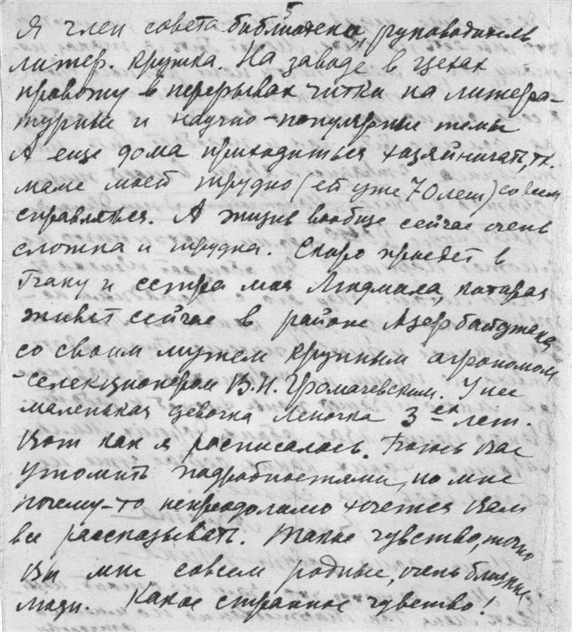 Я член совета библиотеки, руководитель
литер. кружка. На заводе в цехах
провожу в перерывах читки на литера-
турные и научно-популярные темы
А еще дома приходиться хозяйничать, т.к.
маме моей трудно (ей уже 70 лет) со всем
справляться. А жизнь вообще сейчас очень
сложна и трудна. Скоро приедет в
Баку и сестра моя Людмила, которая
живет сейчас в районе Азербайджана
со своим мужем крупным агрономом
-селекционером В.Н. Громачевским. У нее
маленькая девочка Леночка 3ех лет.
Вот как я расписалась. Боюсь Вас
утомить подробностями, но мне
почему-то непреодолимо хочется Вам
все рассказывать. Такое чувство, точно
Вы мне совсем родные, очень близкие
люди. Какое странное чувство!